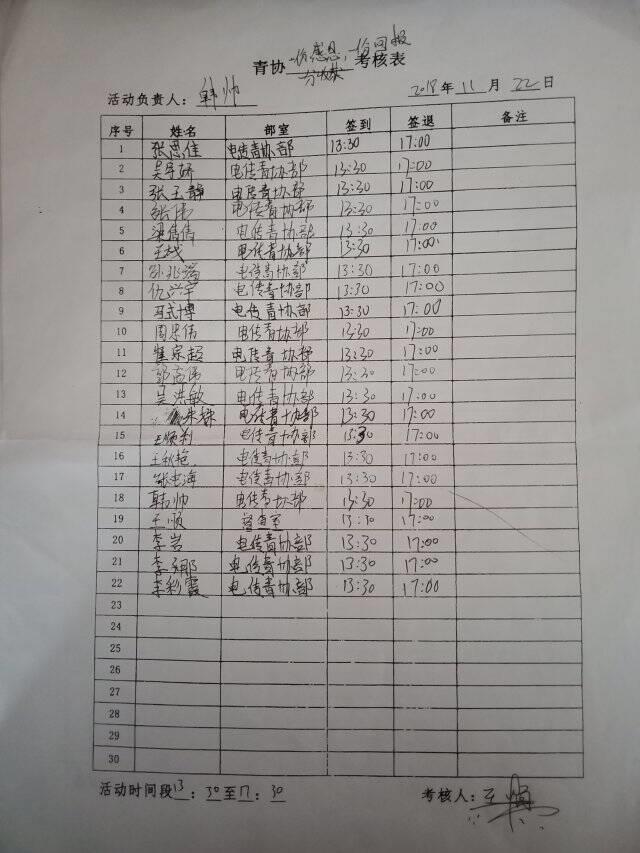 青协一份感恩,一份回报考核表
活动负责人: 韩帅 2018年11月22日
序号 姓名 部室 签到 签退 备注
1 张思佳 电传青协部 13:30 17:00
2 电传青协部 13:30 17:00
3 张玉静 电传青协部 13:30 17:00
4 张伟 电传青协部 13:30 17:00
5 梁倩倩 电传青协部 13:30 17:00
6 电传青协部 13:30 17:00
7 孙兆瑞 电传青协部 13:30 17:00
8 仇兴宇 电传青协部 13:30 17:00
9 马式博 电传青协部 13:30 17:00
10 周忠伟 电传青协部 13:30 17:00
11 崔宗超 电传青协部 13:30 17:00
12 郭孟伟 电传青协部 13:30 17:00
13 吴洪敏 电传青协部 13:30 17:00
14 电传青协部 13:30 17:00
15 王顺利 电传青协部 13:30 17:00
16 王秋艳 电传青协部 13:30 17:00
17 张忠海 电传青协部 13:30 17:00
18 韩帅 电传青协部 13:30 17:00
19 王顺 13:30 17:00
20 李岩 电传青协部 13:30 17:00
21 李娜 电传青协部 13:30 17:00
22 李彩霞 电传青协部 13:30 17:00
23
24
25
26
27
28
29
30
活动时间段13:30至17:30 考核人:王顺